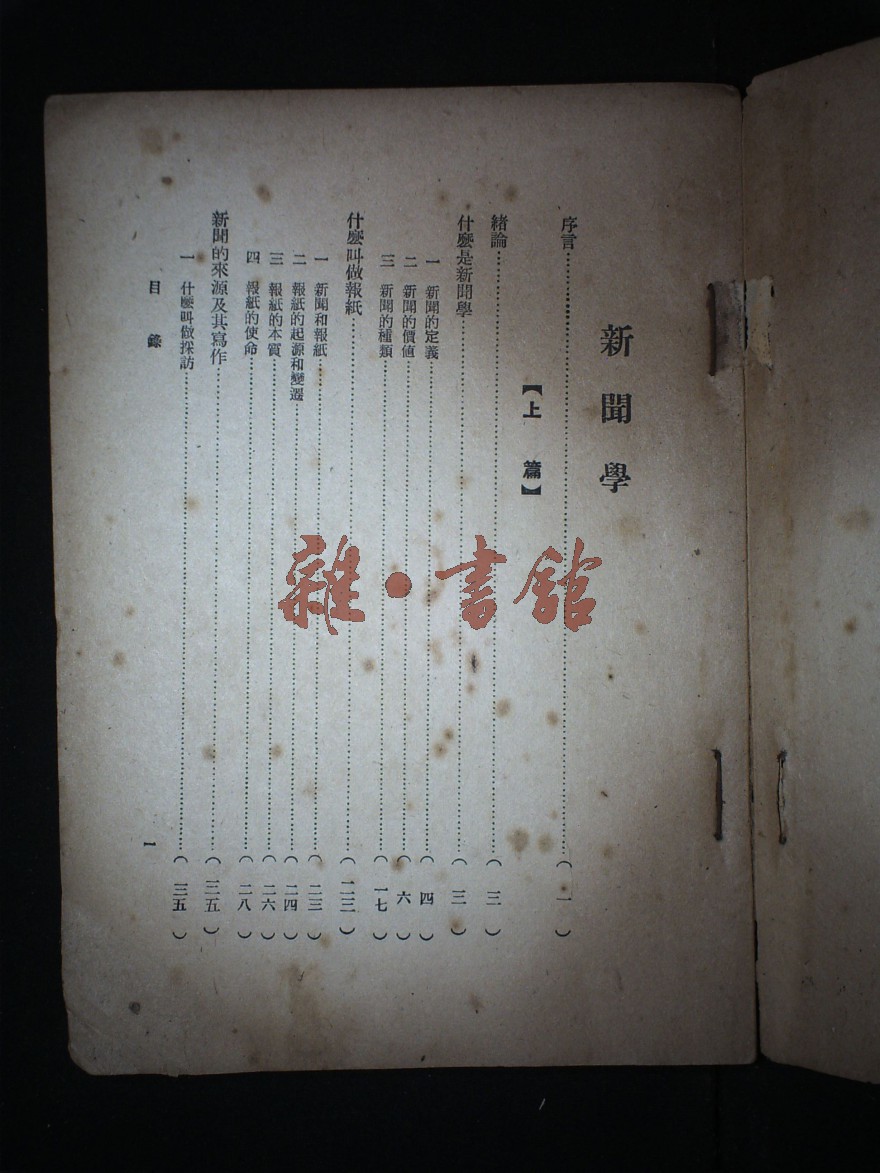 新聞學
序言……（一）
【上篇】
緒論……（三）
什麼是新聞學……（三）
一 新聞的定義……（四）
二 新聞的價値……（六）
三 新聞的種類……（一七）
什麼叫做報紙……（二三）
一 新聞和報紙……（二三）
二 報紙的起源和變遷……（二四）
三 報紙的本質……（二六）
四 報紙的使命……（二八）
新聞的來源及其寫作……（三五）
一 什麼叫做採訪……（三五）
目錄
一
雜·書館